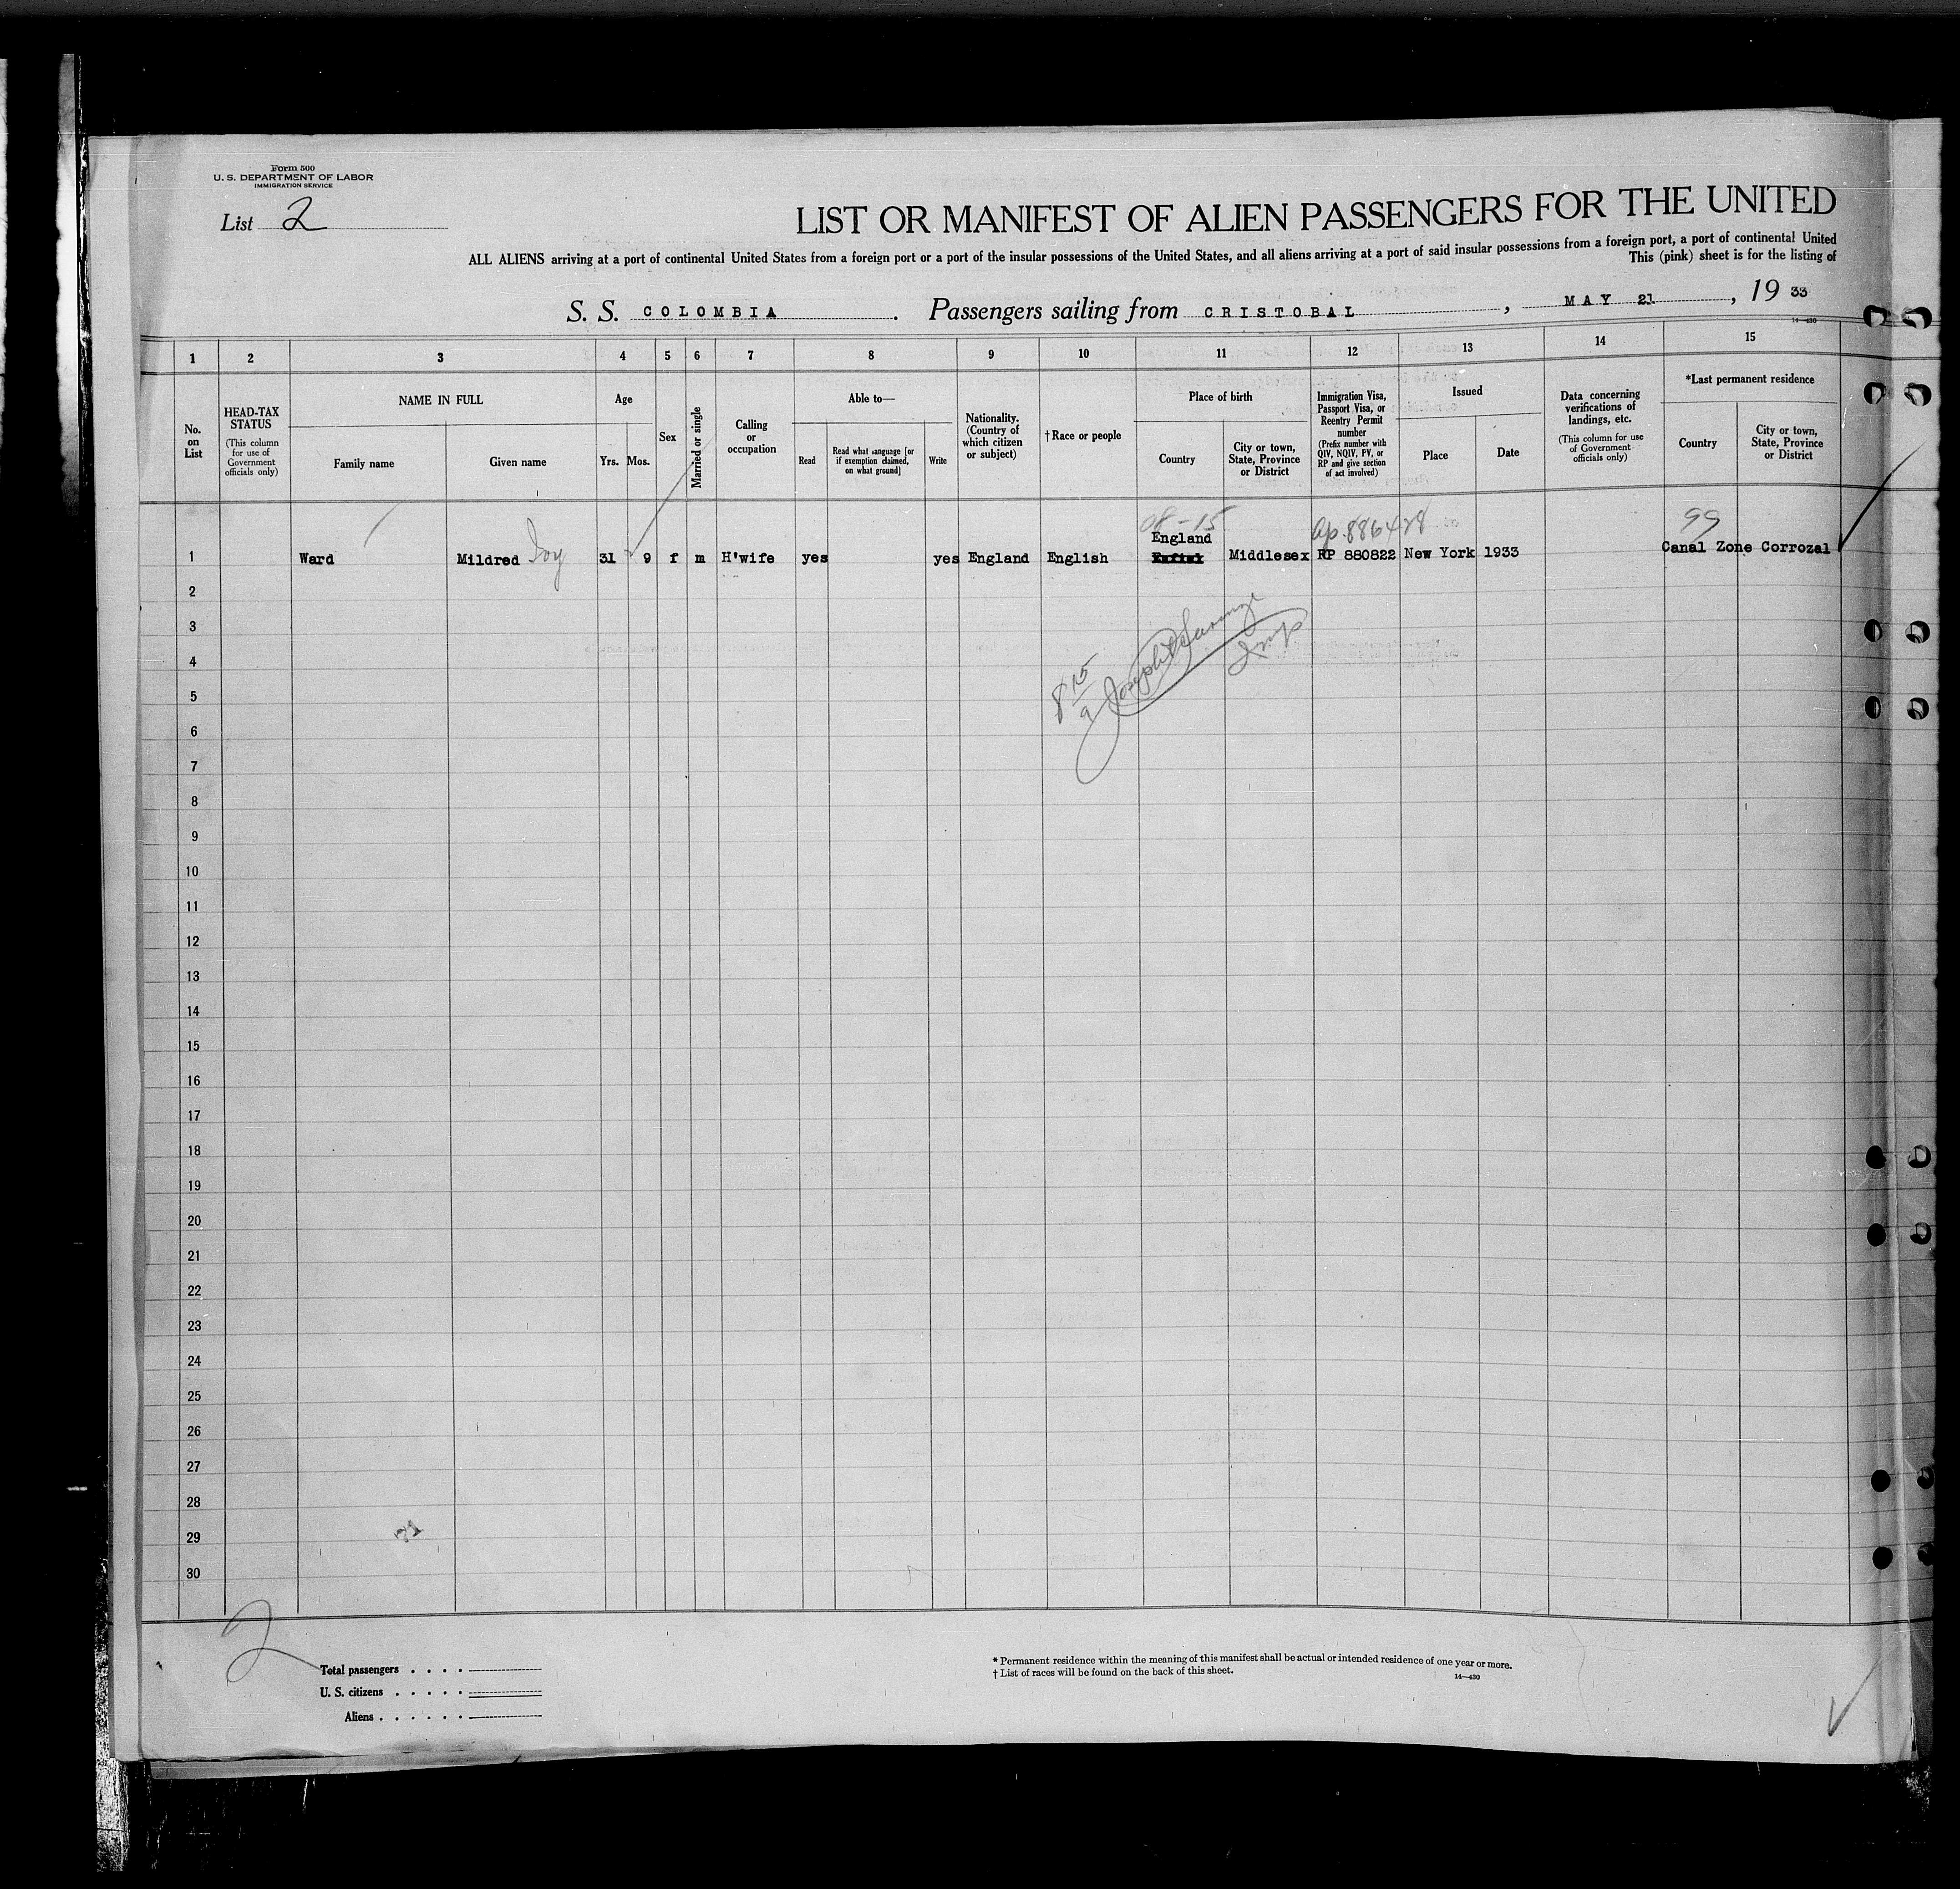 Form 500
U. S. DEPARTMENT OF LABOR
IMMIGRATION SERVICE
List 2
LIST OR MANIFEST OF ALIEN PASSENGERS FOR THE UNITED
ALL ALIENS arriving at a port of continental United States from a foreign port or a port of the insular possessions of the United States, and all aliens arriving at a port of said insular possessions from a foreign port, a port of continental United
This (pink) sheet is for the listing of
S. S. COLOMBIA. Passengers sailing from CRISTOBAL, MAY 21, 19 33
14—430
1 2 3 4 5 6 7 8 9 10 11 12 13 14 15
No. on List
HEAD-TAX STATUS
(This column for use of Government officials only)
NAME IN FULL
Family name
Given name
Age
Yrs. Mos.
Sex
Married or single
Calling or occupation
Able to—
Read
Read what language [or if exemption claimed, on what ground]
Write
Nationality. (Country of which citizen or subject)
†Race or people
Place of birth
Country
City or town, State, Province or District
Immigration Visa, Passport Visa, or Reentry Permit number
(Prefix number with QIV, NQIV, PV, or RP and give section of act involved)
Issued
Place
Date
Data concerning verifications of landings, etc.
(This column for use of Government officials only)
*Last permanent residence
Country
City or town, State, Province or District
08-15
99
England
1 Ward Mildred Joy 31 9 f m H'wife yes yes England English Middlesex RP 880822 New York 1933 Canal Zone Corrozal
2
3
4
5
6
7
8
9
10
11
12
13
14
15
16
17
18
19
20
21
22
23
24
25
26
27
28
29
30
2
Total passengers . . . .
U. S. citizens . . . . .
Aliens . . . . . .
* Permanent residence within the meaning of this manifest shall be actual or intended residence of one year or more.
† List of races will be found on the back of this sheet.
14—430